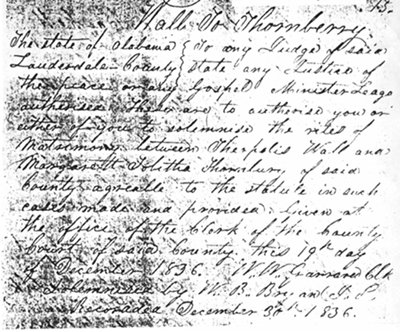 45.
Wall To Thornberry
The state of Alabama { To any Judge of said
Lauderdale County { State any Justice of
the peace or any Gospel Minister Leago
authorised These are to authorise you or
either of you to solemnise the rites of
Matrimony between Therpolis Wall and
Margarett Tolitha Thornbury of said
County agreable to the statute in such
cases made and provided. Given at
the office of the Clerk of the County
Court of said County this 19th day
of December 1836. W. W. Garrard Clk
Solemnised by W. B. Bryant J. P.
Recorded December 30th 1836.